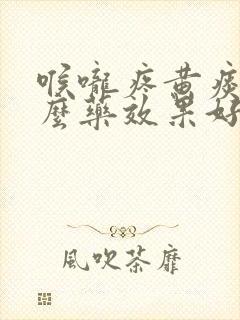 喉嚨疼黄痰
麼藥效果好
風吹茶靡